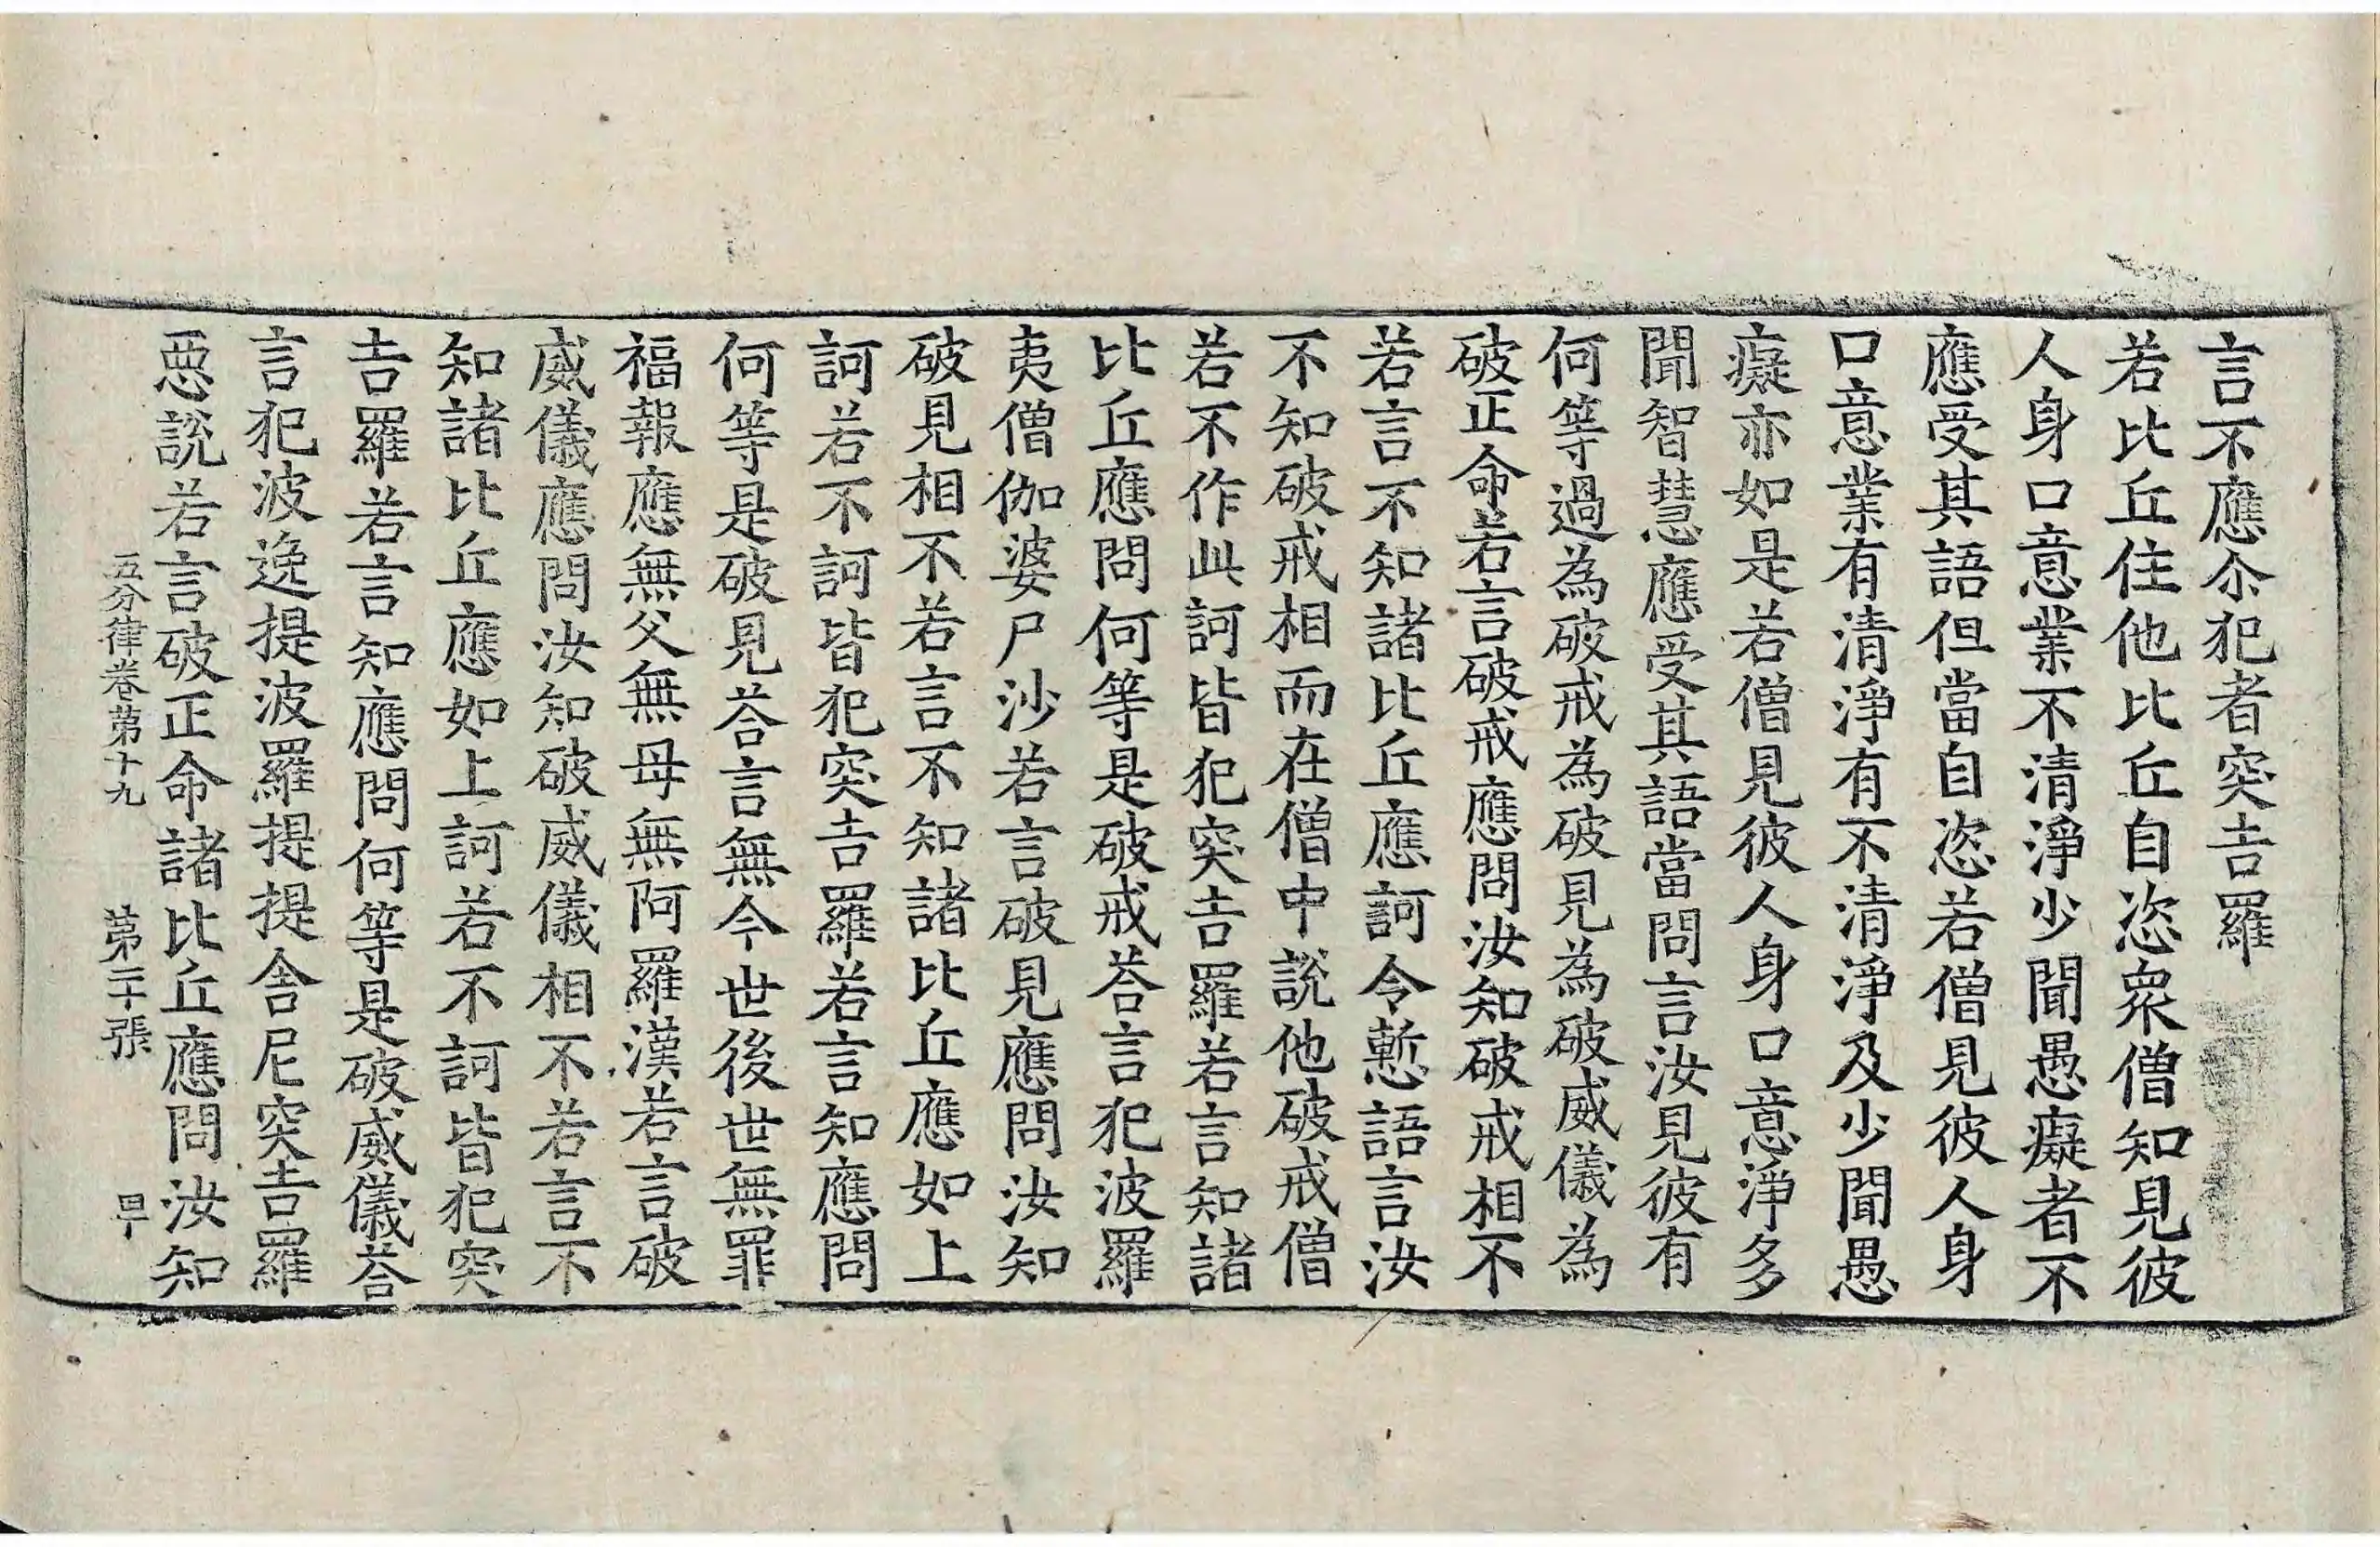 言不應尒犯者突吉羅
若比丘住他比丘自恣衆僧知見彼
人身口意業不清淨少聞愚癡者不
應受其語但當自恣若僧見彼人身
口意業有清淨有不清淨及少聞愚
癡亦如是若僧見彼人身口意淨多
聞智慧應受其語當問言汝見彼有
何等過為破戒為破見為破威儀為
破正命若言破戒應問汝知破戒相不
若言不知諸比丘應訶令慙語言汝
不知破戒相而在僧中說他破戒僧
若不作此訶皆犯突吉羅若言知諸
比丘應問何等是破戒荅言犯波羅
夷僧伽婆尸沙若言破見應問汝知
破見相不若言不知諸比丘應如上
訶若不訶皆犯突吉羅若言知應問
何等是破見荅言無今世後世無罪
福報應無父無母無阿羅漢若言破
威儀應問汝知破威儀相不若言不
知諸比丘應如上訶若不訶皆犯突
吉羅若言知應問何等是破威儀荅
言犯波逸提波羅提提舍尼突吉羅
惡說若言破正命諸比丘應問汝知
五分律卷苐十九 苐二十張